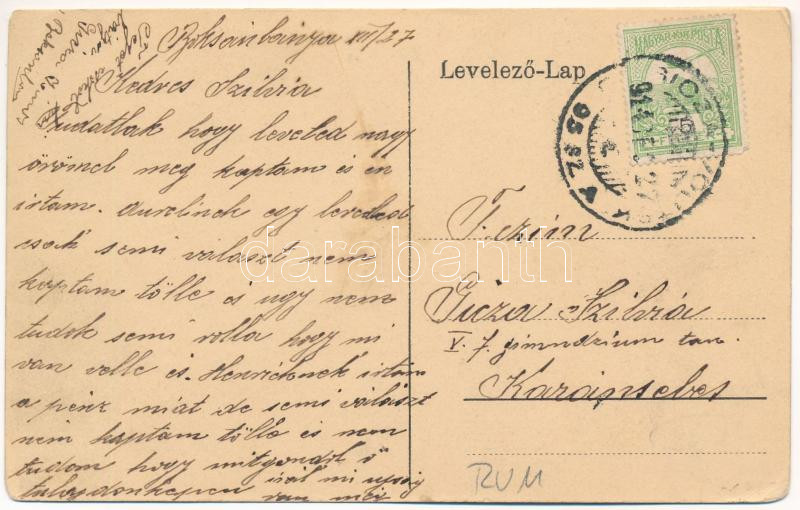 Boksánbánya XII/27
Kedves Szilvia
Tudatlak hogy leveled nagy
örömel meg kaptam és én
irtam. Aurelinek egy levelet
csak semi választ nem
kaptam tölle és ugy nem
tudok semi rolla hogy mi
van velle és. Henrichnek irtam
a penz miat de semi választ
nem kaptam tölle és nem
tudom hogy mit gondol ő
tulajdonkepen irál mi ujság
van még
Levelező-Lap
MAGYAR KIR. POSTA
T. czim
Szilvia
V. f. gimnázium tan.
Karánsebes
RUM
darabanth